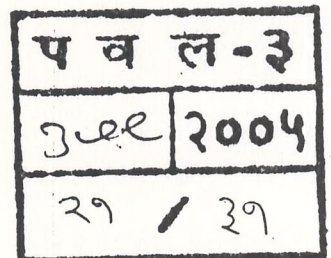 प व ल - ३
२००५
२१ / ३१